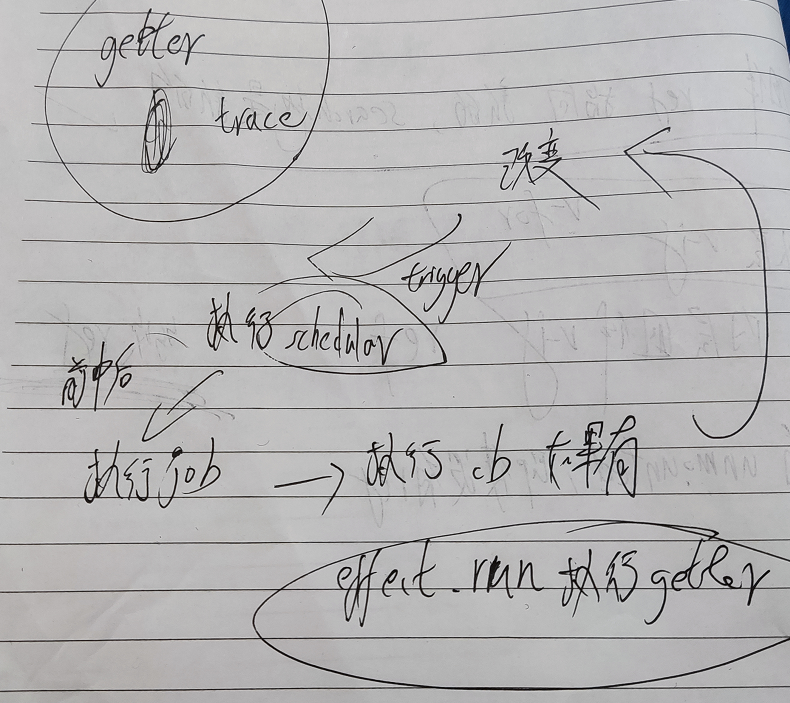 getter
trace
改变
trigger
执行 schedular
前中后
执行job → 执行 cb 如果有
effect.run 执行getter